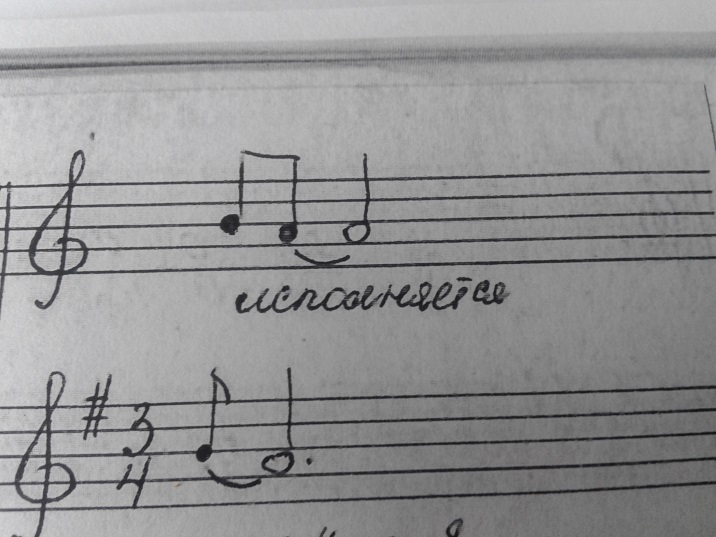 исполняется
3
4